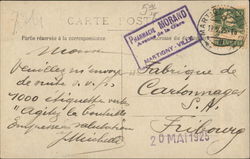 CARTE POSTALE
Partie réservée à la correspondance
PHARMACIE MORAND
Avenue de la Gare
MARTIGNY-VILLE
Monsieur
Veuillez m'envoyer
de suite s. v. p.
1000 étiquettes vertes
"Agitez la bouteille"
Fabrique de
Cartonnages
S.A.
Fribourg
20 MAI 1925